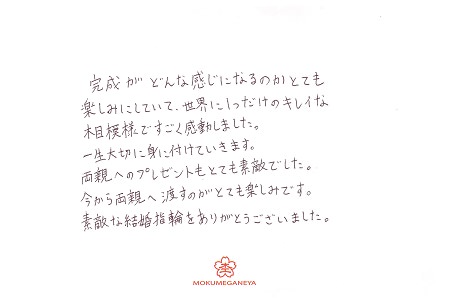 完成が どんな感じになるのかとても
楽しみにしていて、世界に1つだけのキレイな
木目模様ですごく感動しました。
一生大切に身に付けていきます。
両親へのプレゼントもとても素敵でした。
今から両親へ渡すのがとても楽しみです。
素敵な結婚指輪をありがとうございました。
MOKUMEGANEYA